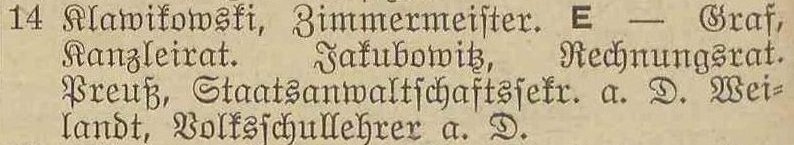 14 Klawikowski, Zimmermeister. E — Graf,
Kanzleirat. Jakubowitz, Rechnungsrat.
Preuß, Staatsanwaltschaftssekr. a. D. Wei-
landt, Volksschullehrer a. D.